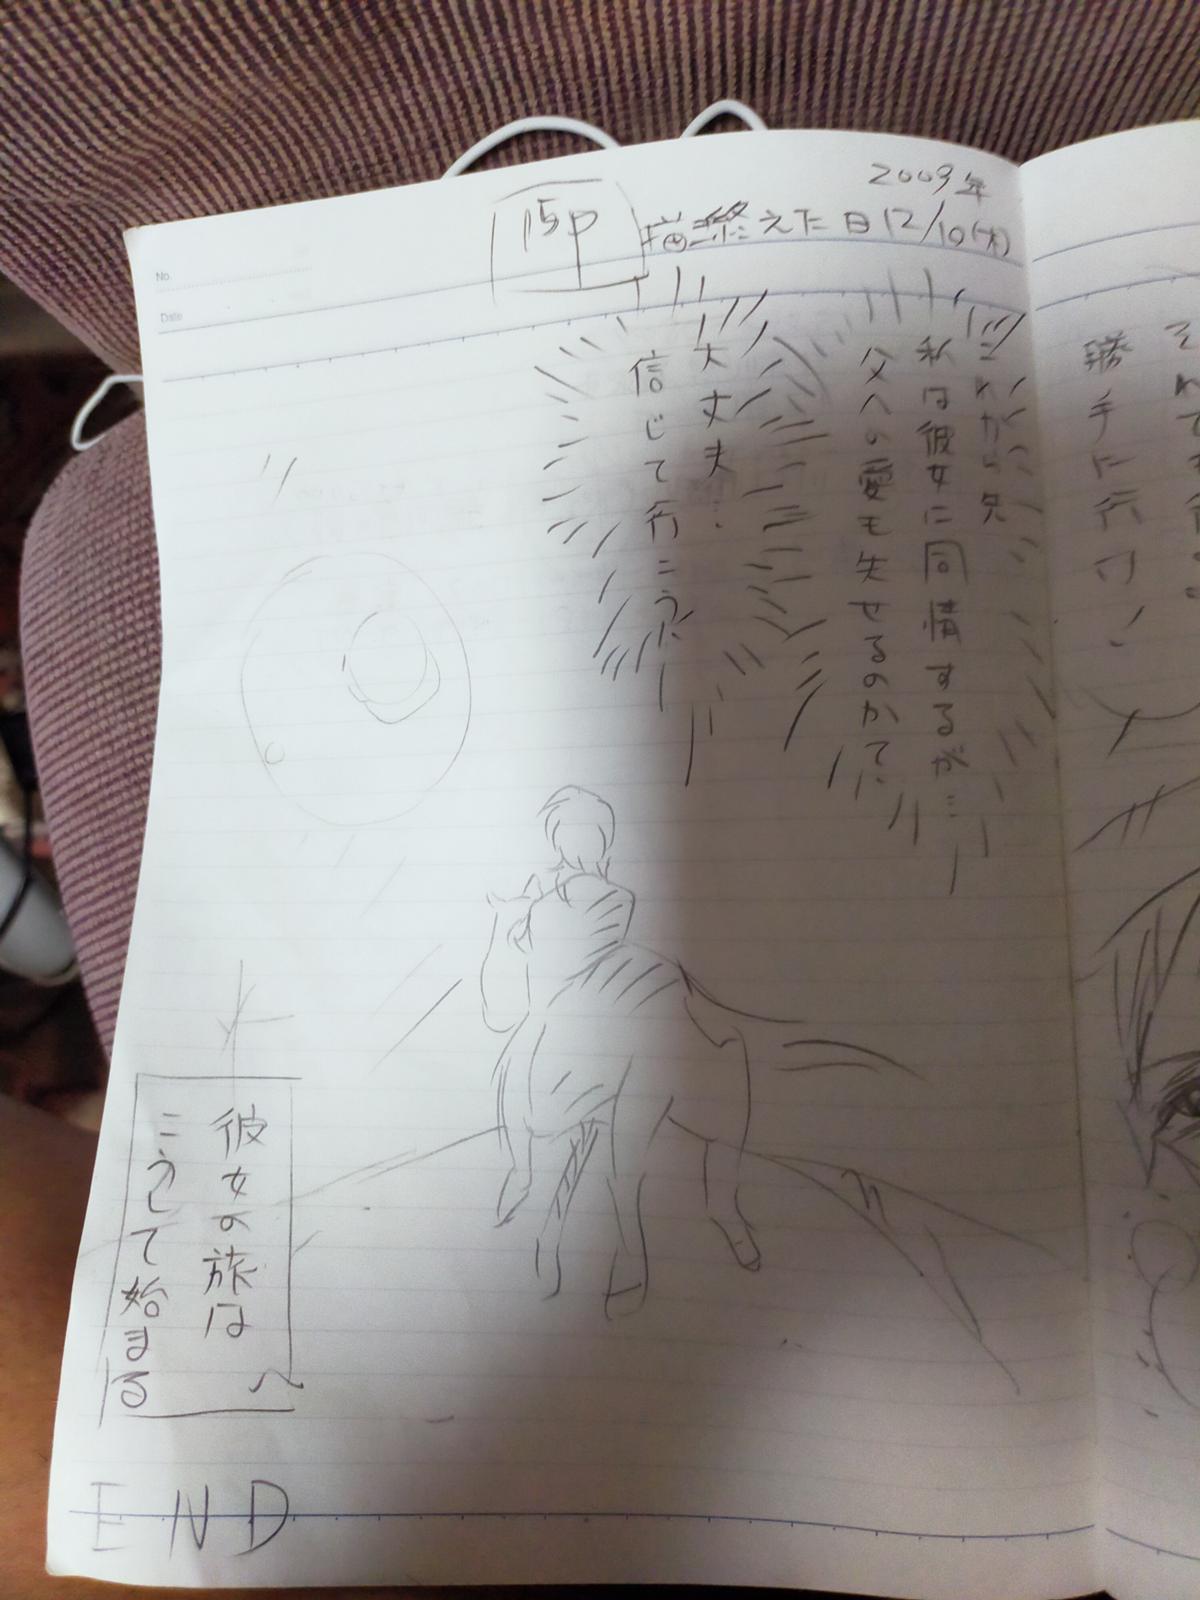 No.
Date
15p
2009年
描終えた日12/10(木)
これから先
私は彼女に同情するが…
父への愛も失せるのかて…
大丈夫…
信じて行こう…
彼女の旅は
こうして始まる
END
勝手に行け!